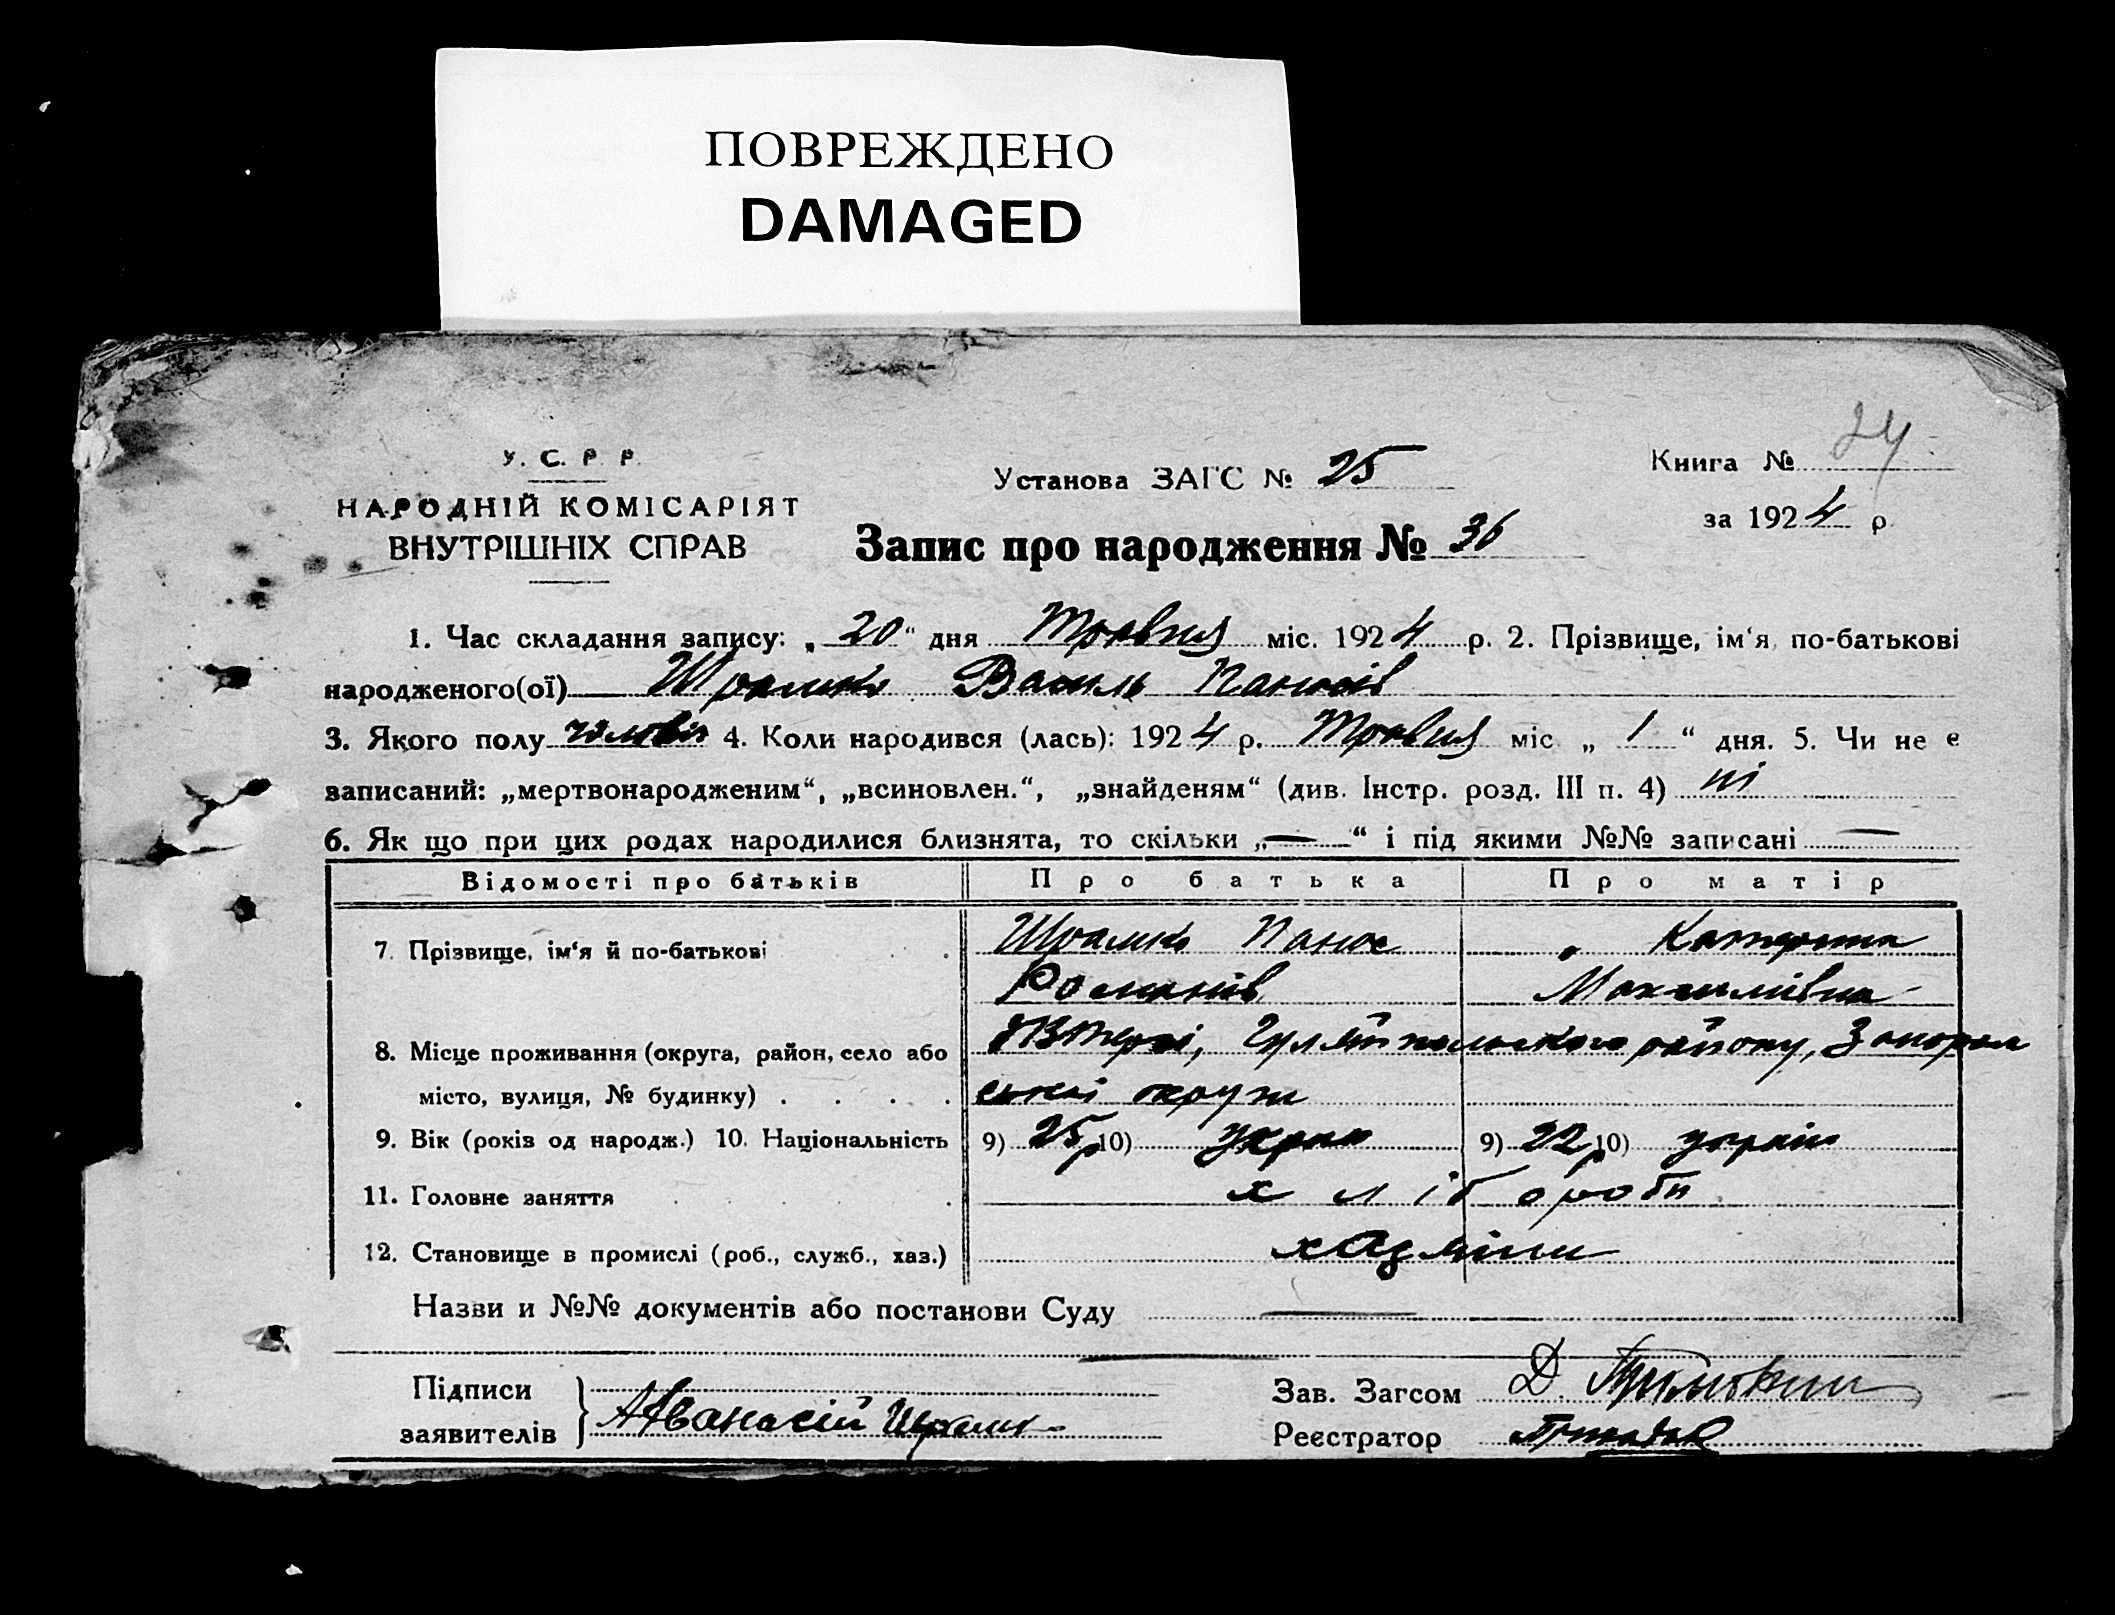 ПОВРЕЖДЕНО
DAMAGED
У. С. Р. Р.
НАРОДНІЙ КОМІСАРІЯТ
ВНУТРІШНІХ СПРАВ
Установа ЗАГС № 25
Запис про народження № 36
Книга № 24
за 1924 р.
1. Час складання запису: „20“ дня Травня міс. 1924 р. 2. Прізвище, ім‘я, по-батькові
народженого(ої) Шрамко Василь Панасів
3. Якого полу чоловіч 4. Коли народився (лась): 1924 р. Травня міс „1“ дня. 5. Чи не є
записаний: „мертвонародженим“, „всиновлен.“, „знайденям“ (див. Інстр. розд. III п. 4) ні
6. Як що при цих родах народилися близнята, то скільки „—“ і під якими №№ записані —
Відомості про батьків Про батька Про матір
7. Прізвище, ім‘я й по-батькові Шрамко Панас „ Катерина
Романів Максимівна
8. Місце проживання (округа, район, село або Гуляйпольського району, Запорож
місто, вулиця, № будинку) ської округи
9. Вік (років од народж.) 10. Національність 9) 25р 10) Украін 9) 22р 10) украін
11. Головне заняття хлібороби
12. Становище в промислі (роб., служб., хаз.)
Назви и №№ документів або постанови Суду —
Підписи
заявителів Афанасій Шрамко
Зав. Загсом Д.
Реєстратор